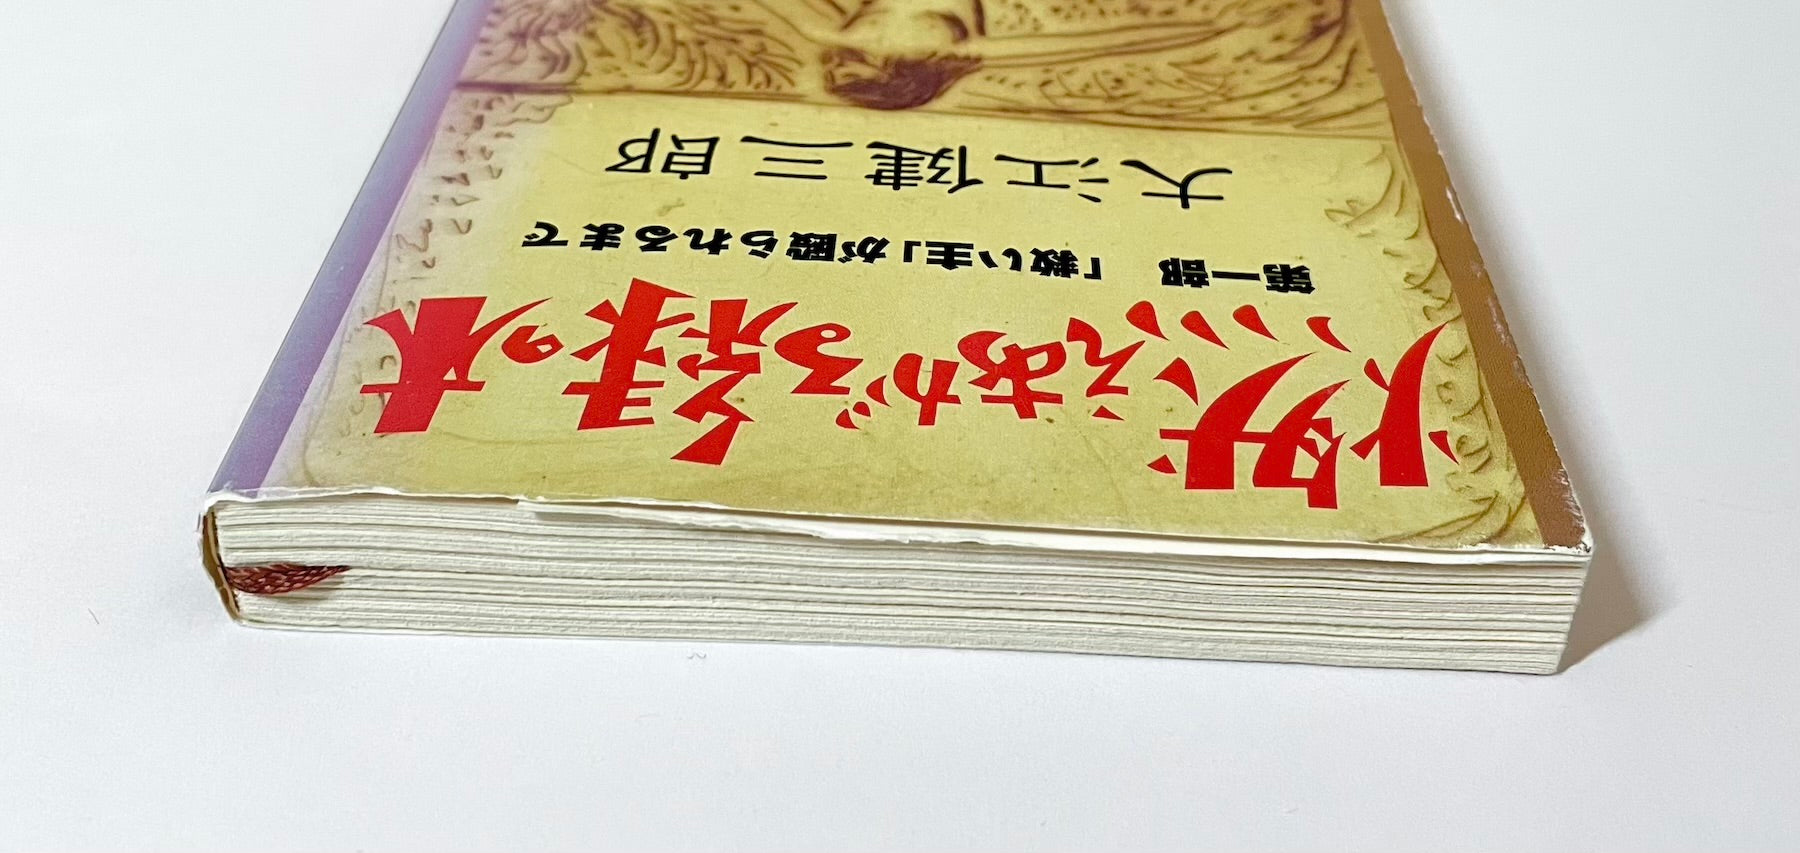 燃えあがる緑の木
第一部 「救い主」が殴られるまで
大江健三郎